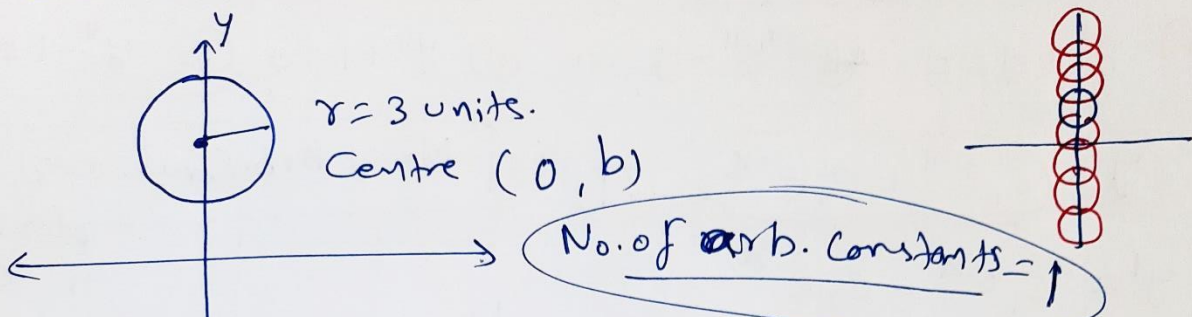 y
r = 3 units.
Centre (0, b)
No. of arb. constants = 1